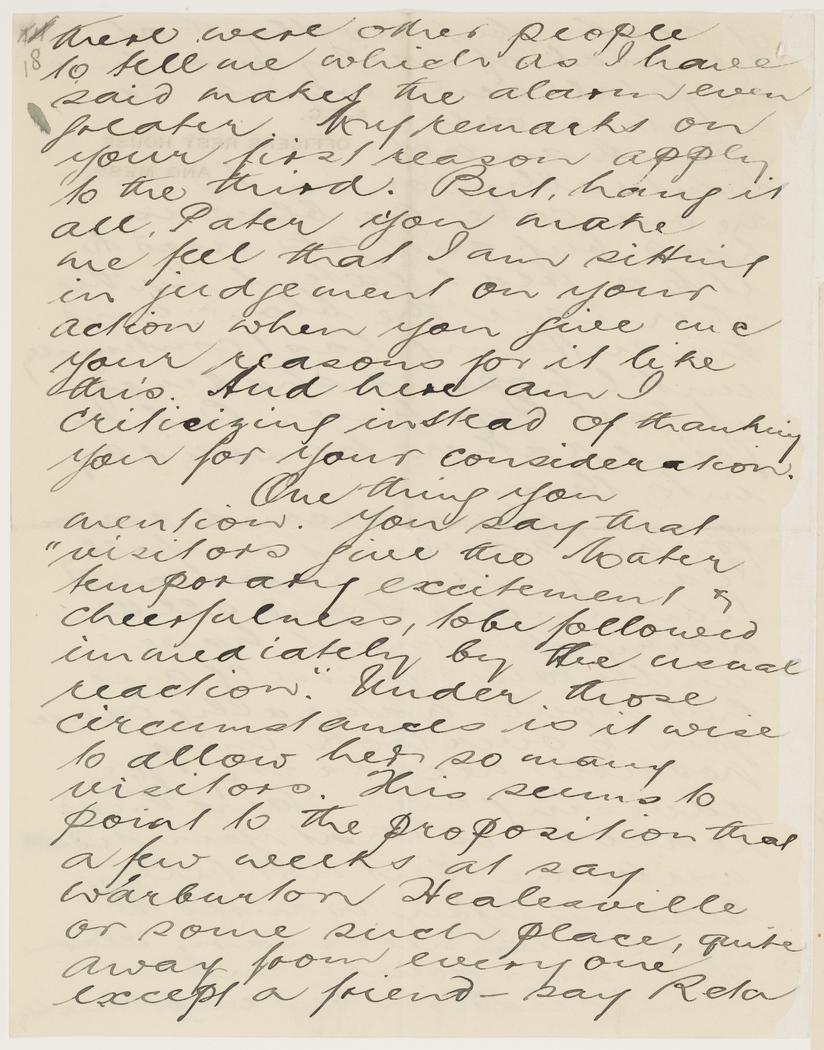 18
there were other people
to tell me which as I have
said makes the alarm even
greater. My remarks on
your first reason apply
to the third. But, hang it
all, Pater you make
me feel that I am sitting
in judgement on your
action when you give me
your reasons for it like
this. And here am I
criticizing instead of thanking
you for your consideration.
One thing you
mention. You say that
"visitors give the Mater
temporary excitement &
cheerfulness, to be followed
immediately by the usual
reaction". Under those
circumstances is it wise
to allow her so many
visitors. This seems to
point to the proposition that
a few weeks at say
Warburton Healesville
or some such place, quite
away from everyone
except a friend – say Reta